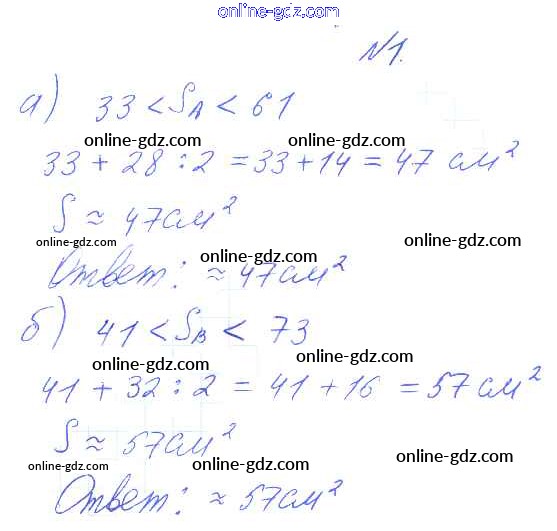 online-gdz.com
№1.
а) 33 < S_A < 61
online-gdz.com online-gdz.com
33 + 28 : 2 = 33 + 14 = 47 см²
S ≈ 47 см²
online-gdz.com online-gdz.com online-gdz.com
Ответ: ≈ 47 см²
б) 41 < S_B < 73
online-gdz.com online-gdz.com
41 + 32 : 2 = 41 + 16 = 57 см²
S ≈ 57 см²
online-gdz.com online-gdz.com online-gdz.com
Ответ: ≈ 57 см²